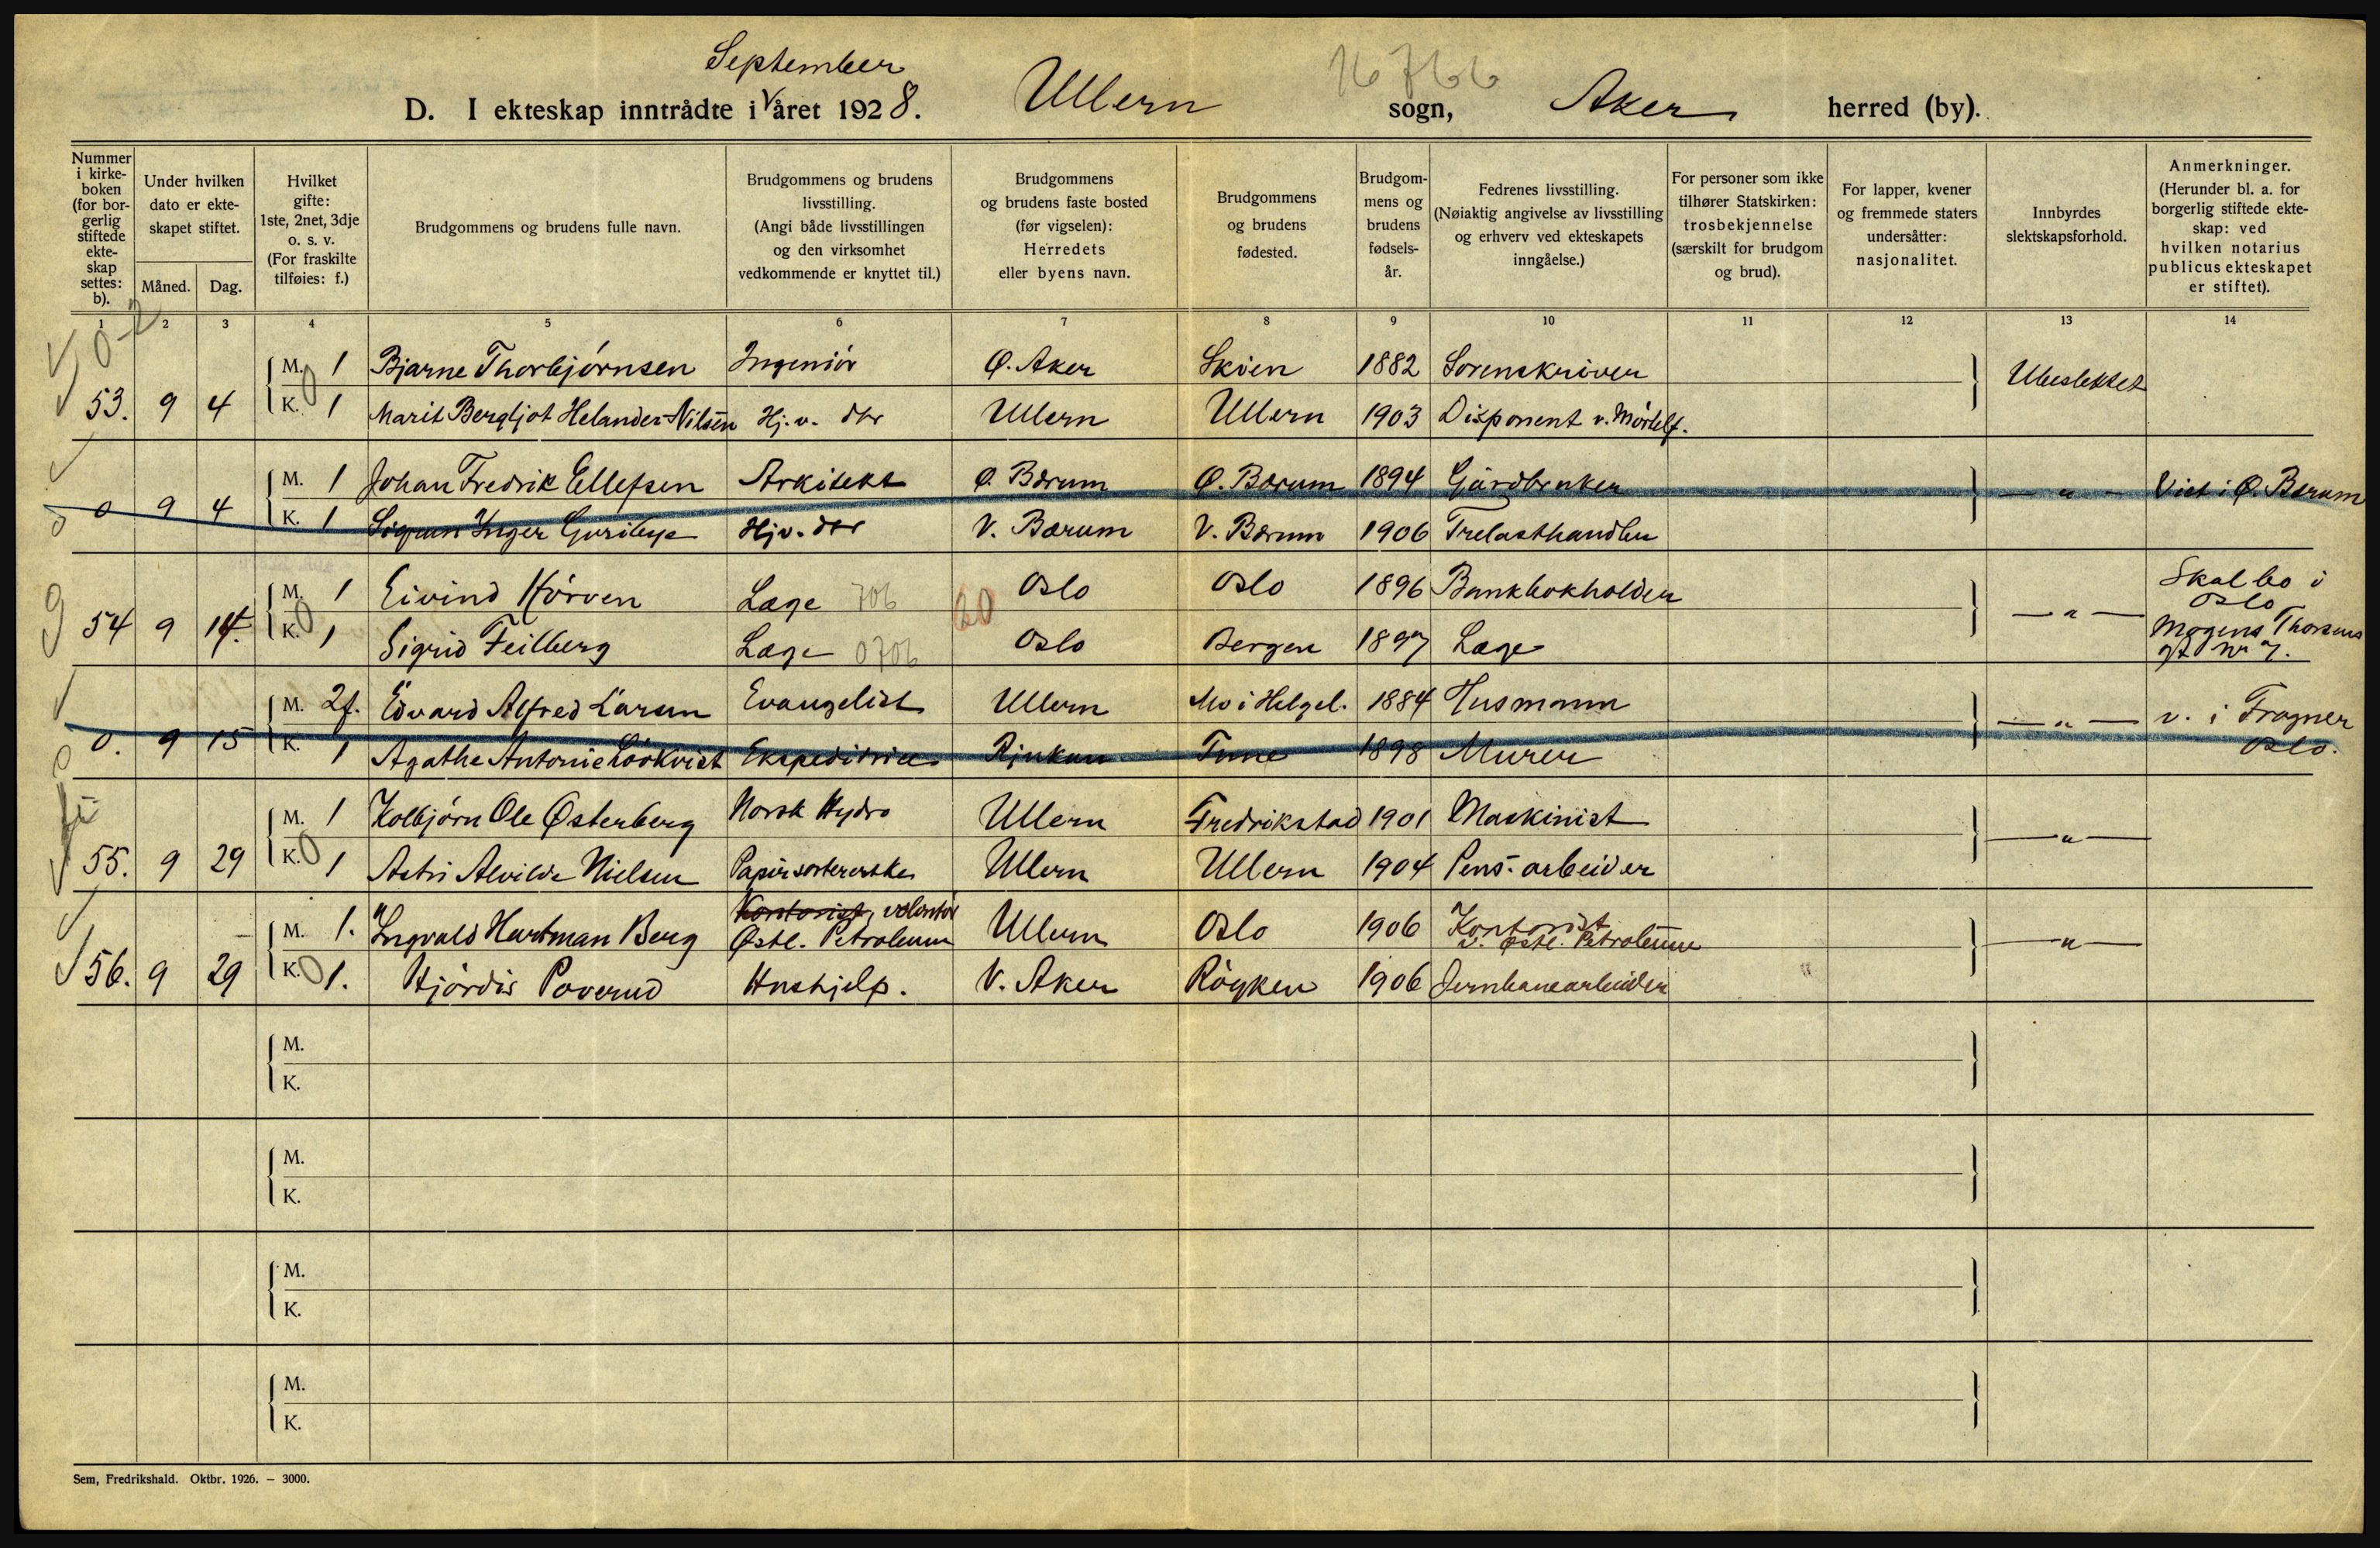 September
16766
D. I ekteskap inntrådte i året 1928. Ullern sogn, Aker herred (by).
Nummer i kirkeboken (for borgerlig stiftede ekteskap settes: b).
Under hvilken dato er ekteskapet stiftet.
Måned. Dag.
Hvilket gifte: 1ste, 2net, 3dje o. s. v. (For fraskilte tilføies: f.)
Brudgommens og brudens fulle navn.
Brudgommens og brudens livsstilling. (Angi både livsstillingen og den virksomhet vedkommende er knyttet til.)
Brudgommens og brudens faste bosted (før vigselen): Herredets eller byens navn.
Brudgommens og brudens fødested.
Brudgommens og brudens fødselsår.
Fedrenes livsstilling. (Nøiaktig angivelse av livsstilling og erhverv ved ekteskapets inngåelse.)
For personer som ikke tilhører Statskirken: trosbekjennelse (særskilt for brudgom og brud).
For lapper, kvener og fremmede staters undersåtter: nasjonalitet.
Innbyrdes slektskapsforhold.
Anmerkninger. (Herunder bl. a. for borgerlig stiftede ekteskap: ved hvilken notarius publicus ekteskapet er stiftet).
1 2 3 4 5 6 7 8 9 10 11 12 13 14
M. 1 Bjarne Thorbjörnsen Ingeniör Ø. Aker Skien 1882 Sorenskriver Ubeslektet
53. 9 4 K. 1 Marit Bergljot Helander-Nilsen Hj. v. dtr Ullern Ullern 1903 Disponent v. Mörtelf.
M. 1 Johan Fredrik Ellefsen Arkitekt Ø. Bærum Ø. Bærum 1894 Gårdbruker — " — Viet i Ø. Bærum
0 9 4 K. 1 Sigrun Inger Hj. v. dtr V. Bærum V. Bærum 1906 Trelasthandler
M. 1 Eivind Körven Læge 706 Oslo Oslo 1896 Bankbokholder Skal bo i Oslo
54 9 14. K. 1 Sigrid Feilberg Læge 0706 Oslo Bergen 1897 Læge — " — Mogens Thorsens gt nr 7.
M. 2f. Edvard Alfred Larsen Evangelist Ullern Mo i Helgel. 1884 Husmann — " — v. i Frogner Oslo.
0. 9 15 K. 1 Agathe Antonie Löökvist Ekspeditrice Rjukan Tune 1898 Murer
M. 1 Kolbjörn Ole Østerberg Norsk Hydro Ullern Fredrikstad 1901 Maskinist — " —
55. 9 29 K. 1 Astri Alvilde Nielsen Papirsortererske Ullern Ullern 1904 Pens. arbeider
M. 1. Ingvald Hartman Berg Kontorist, volontör Østl. Petroleum Ullern Oslo 1906 Kontorist v. Østl. Petroleum — " —
56. 9 29 K. 1. Hjördis Poverud Hushjelp. V. Aker Röyken 1906 Jernbanearbeider
M.
K.
M.
K.
M.
K.
M.
K.
Sem, Fredrikshald. Oktbr. 1926. — 3000.